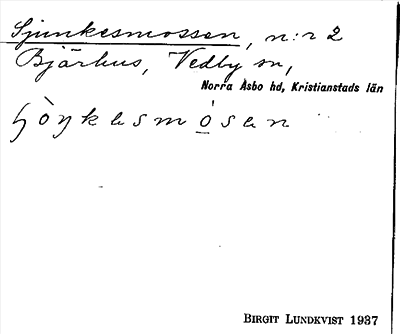 Sjunkesmossen, n:r 2
Bjärhus, Vedby sn,
Norra Åsbo hd, Kristianstads län
BIRGIT LUNDKVIST 1937